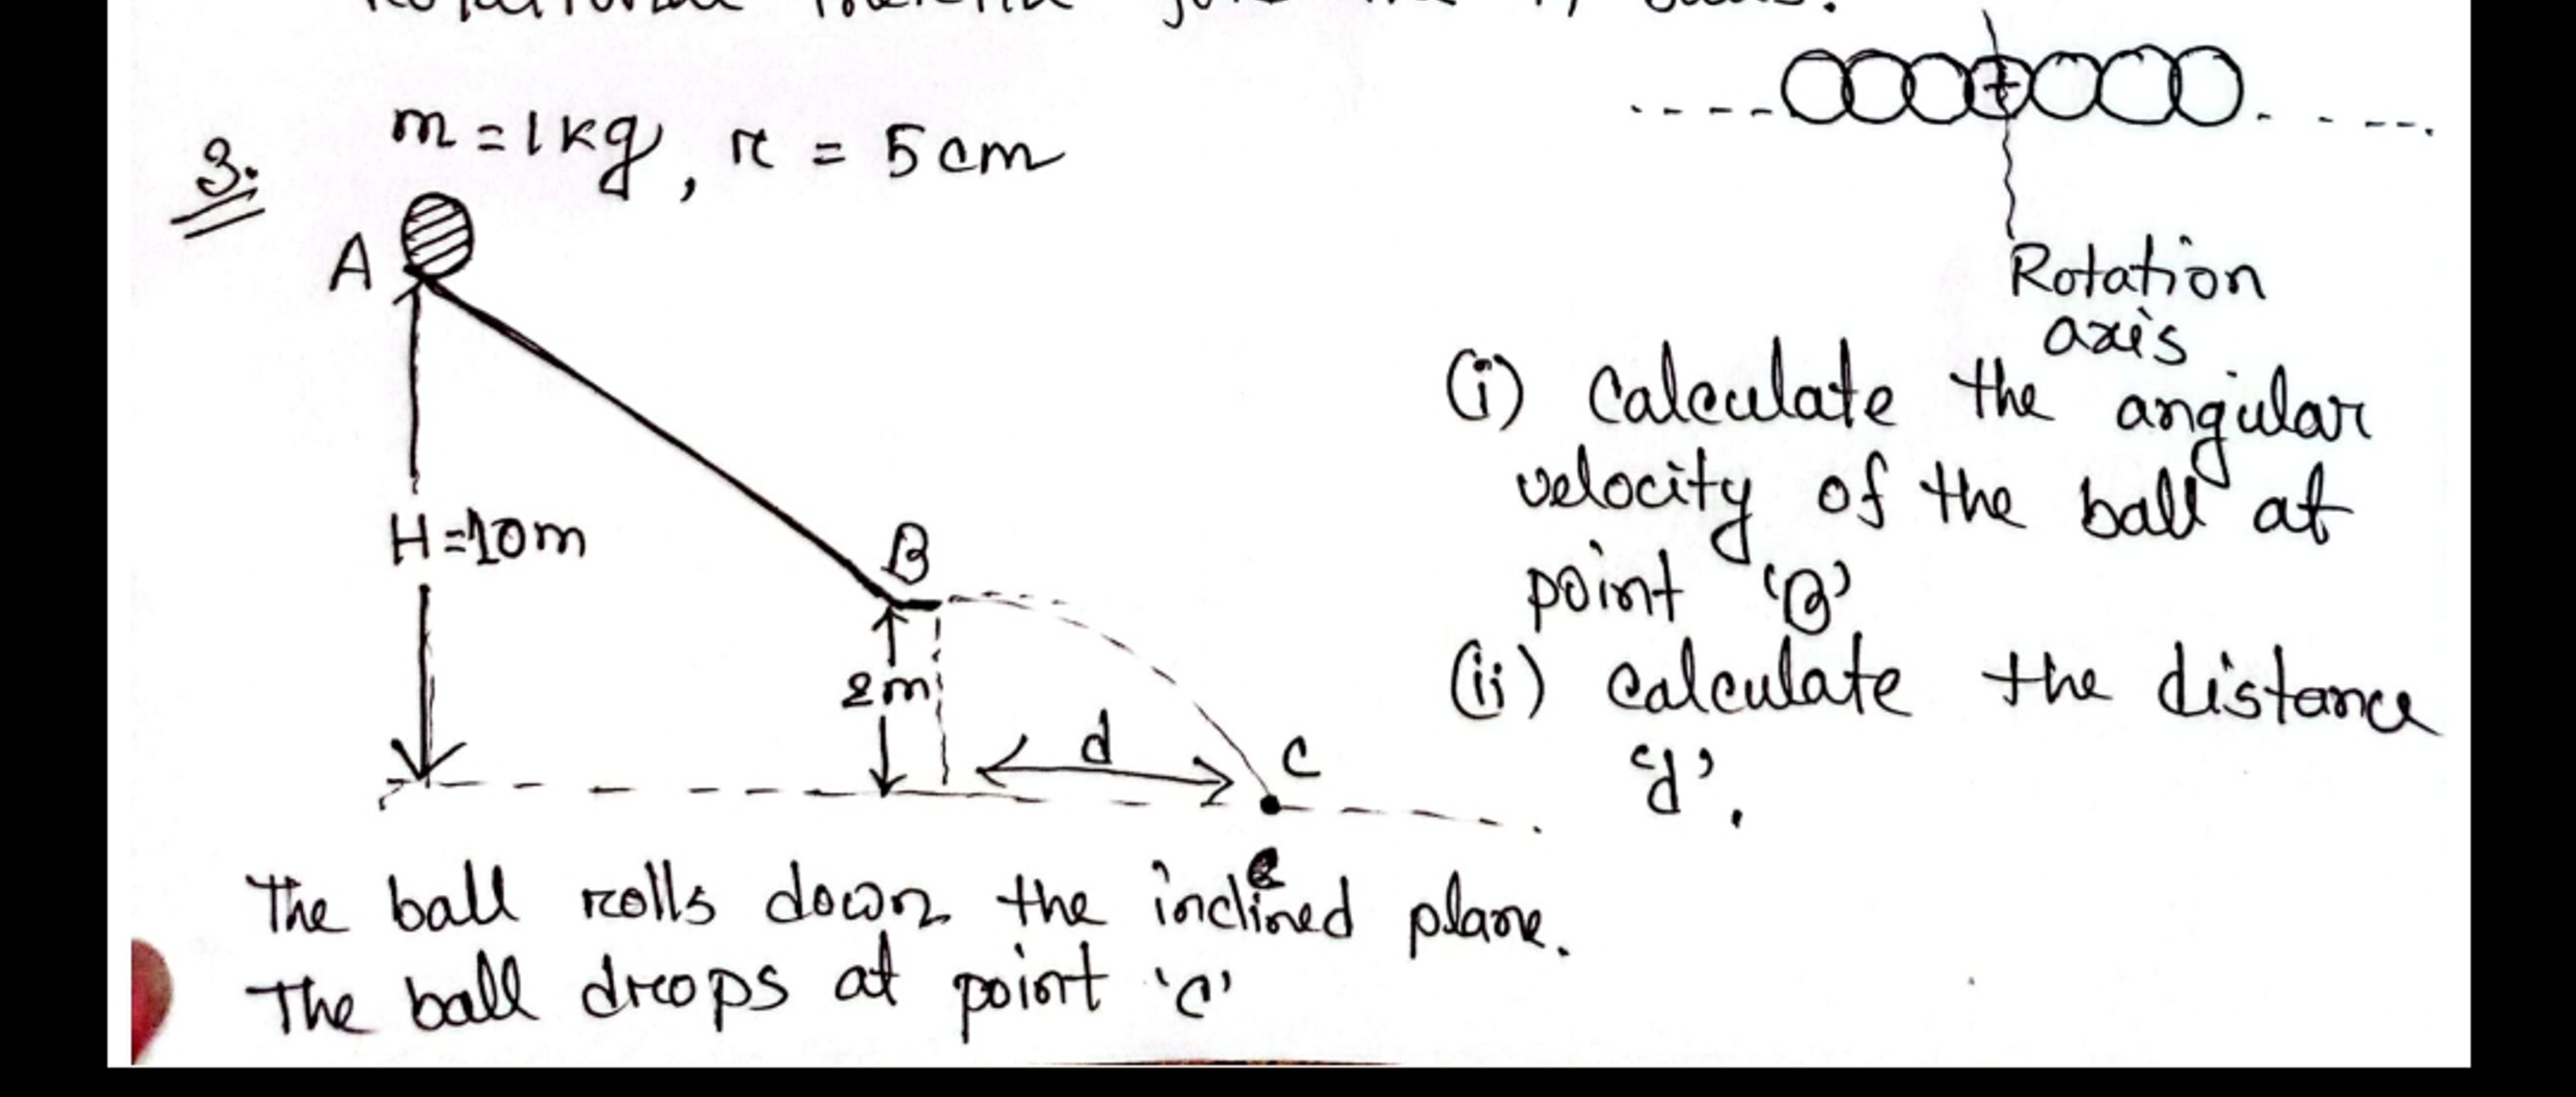 3.
m = 1kg, r = 5cm
A
H = 10m
B
2m
d
C
Rotation
axis
(i) Calculate the angular
velocity of the ball at
point 'B'
(ii) calculate the distance
'd'.
The ball rolls down the inclined plane.
The ball drops at point 'c'